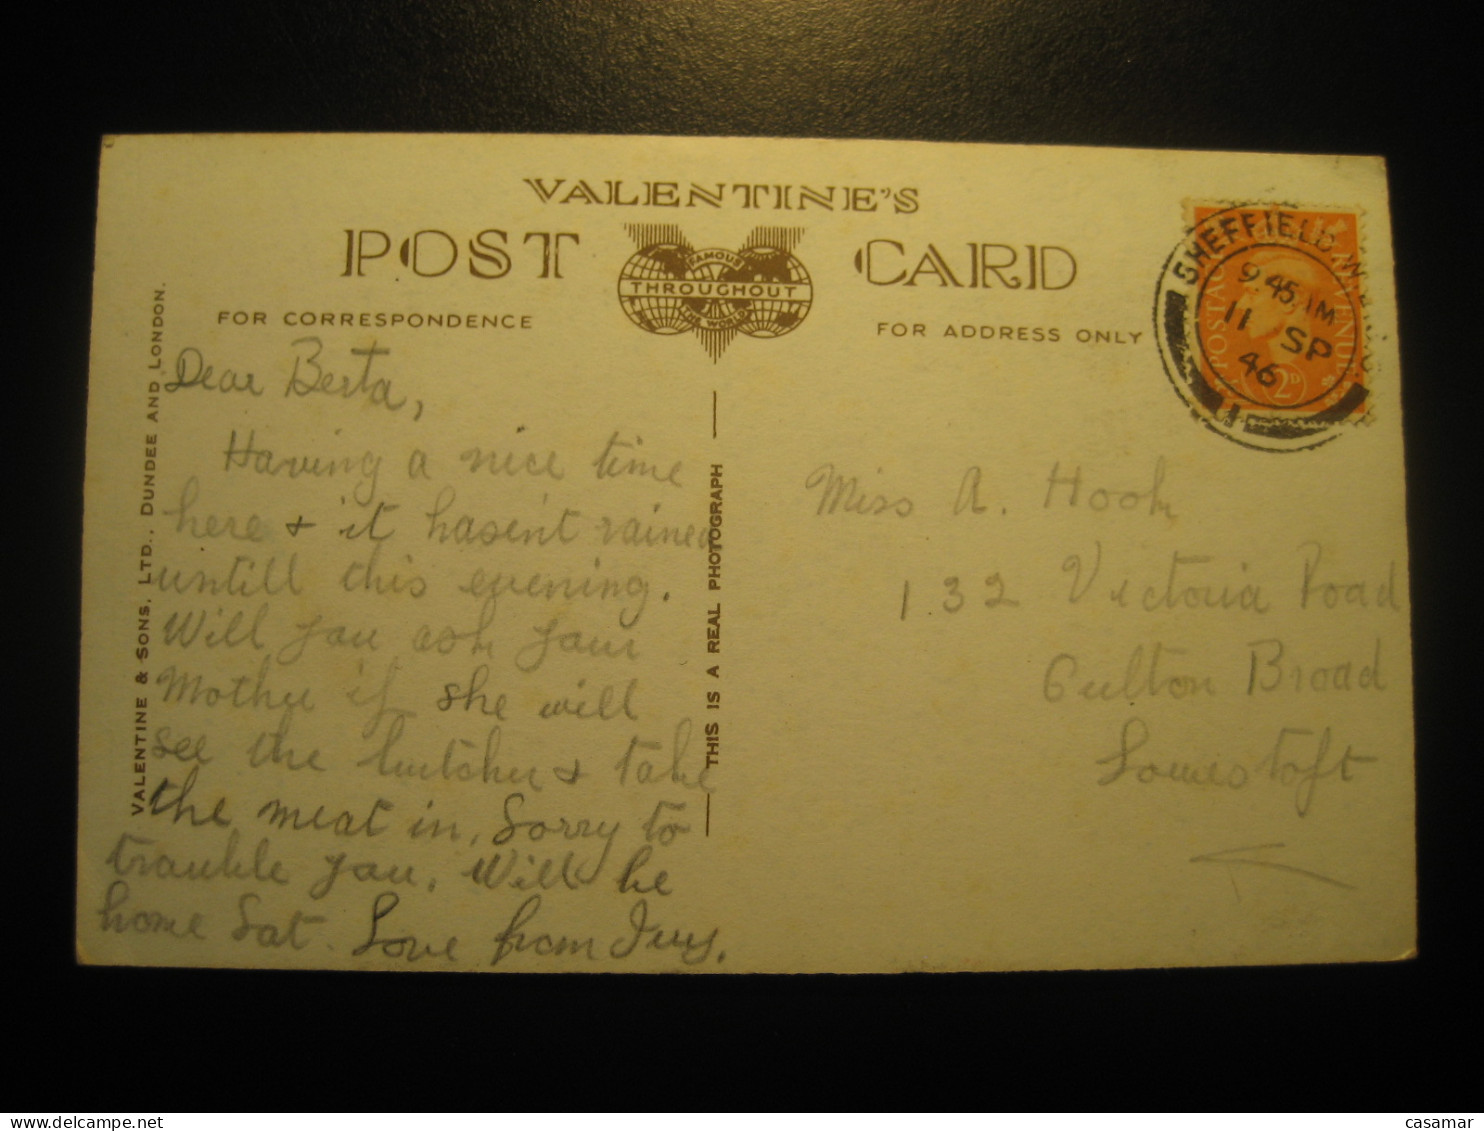 VALENTINE'S
POST CARD
FAMOUS
THROUGHOUT
THE WORLD
FOR CORRESPONDENCE
FOR ADDRESS ONLY
VALENTINE & SONS, LTD., DUNDEE AND LONDON.
THIS IS A REAL PHOTOGRAPH
Dear Berta,
Having a nice time
here & it hasen't rained
untill this evening.
Will you ask your
Mother if she will
see the butcher & take
the meat in. Sorry to
trouble you. Will be
home Sat. Love from Ivy.
SHEFFIELD
9.45 AM
11 SP
46
1
POSTAGE
REVENUE
2D
Miss A. Hook
132 Victoria Road
Oulton Broad
Lowestoft
casamar